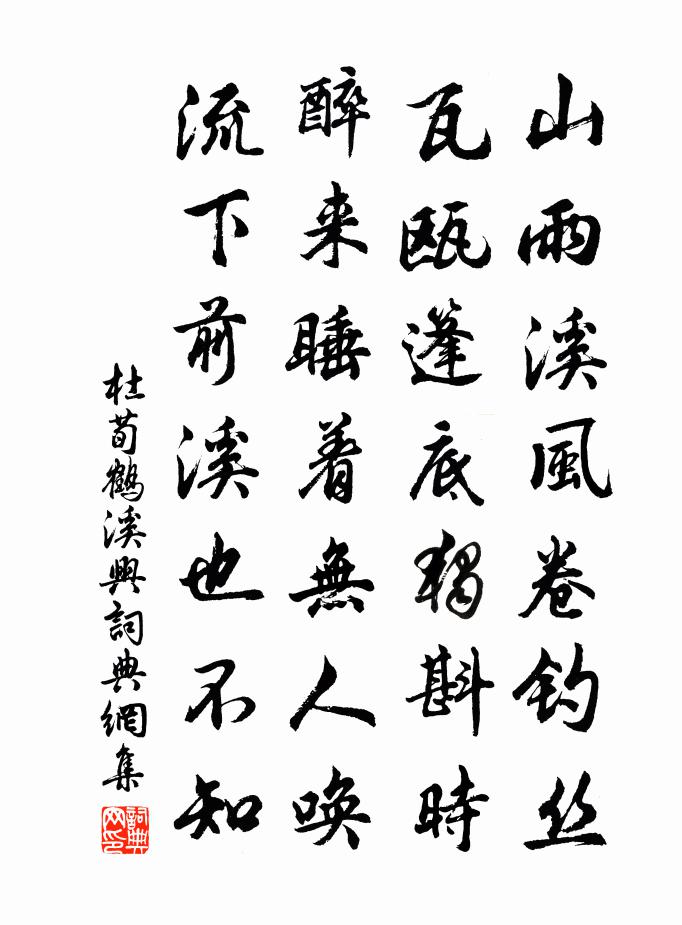 山雨溪風卷钓丝
瓦瓯篷底獨斟時
醉来睡着無人唤
流下前溪也不知
杜荀鶴溪興詞典網集
詞典网印